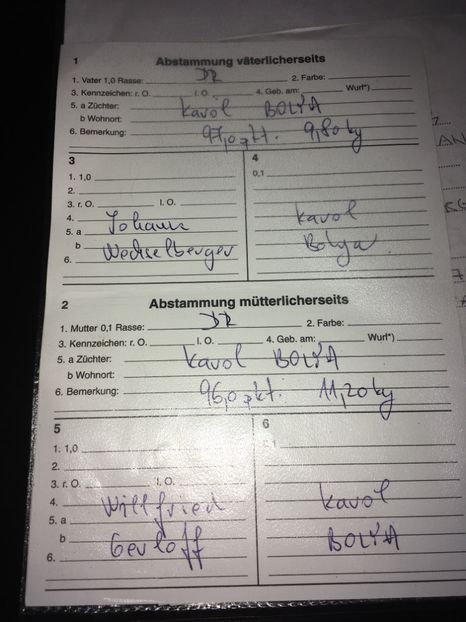 1 Abstammung väterlicherseits
1. Vater 1,0 Rasse: DR 2. Farbe:
3. Kennzeichen: r. O. l. O. 4. Geb. am: Wurf*)
5. a Züchter: Karol BOLYA
b Wohnort:
6. Bemerkung: 97,0 pkt. 9,80 kg
3
1. 1,0
2.
3. r. O. l. O.
4.
5. a Johann
b Wechselberger
6.
4
0,1
Karol
Bolya
2 Abstammung mütterlicherseits
1. Mutter 0,1 Rasse: DR 2. Farbe:
3. Kennzeichen: r. O. l. O. 4. Geb. am: Wurf*)
5. a Züchter: Karol BOLYA
b Wohnort:
6. Bemerkung: 96,0 pkt. 11,20 kg
5
1. 1,0
2.
3. r. O. l. O.
4. Willfried
5. a
b Gerloff
6.
6
0,1
Karol
BOLYA